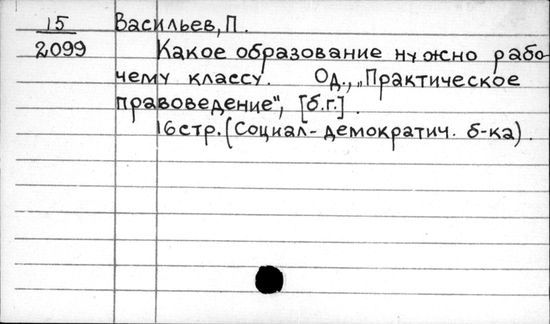 15 Васильев, П.
2099 Какое образование нужно рабо-
чему классу. Од., „Практическое
правоведение", [б.г.].
16 стр. (Социал-демократич. б-ка).